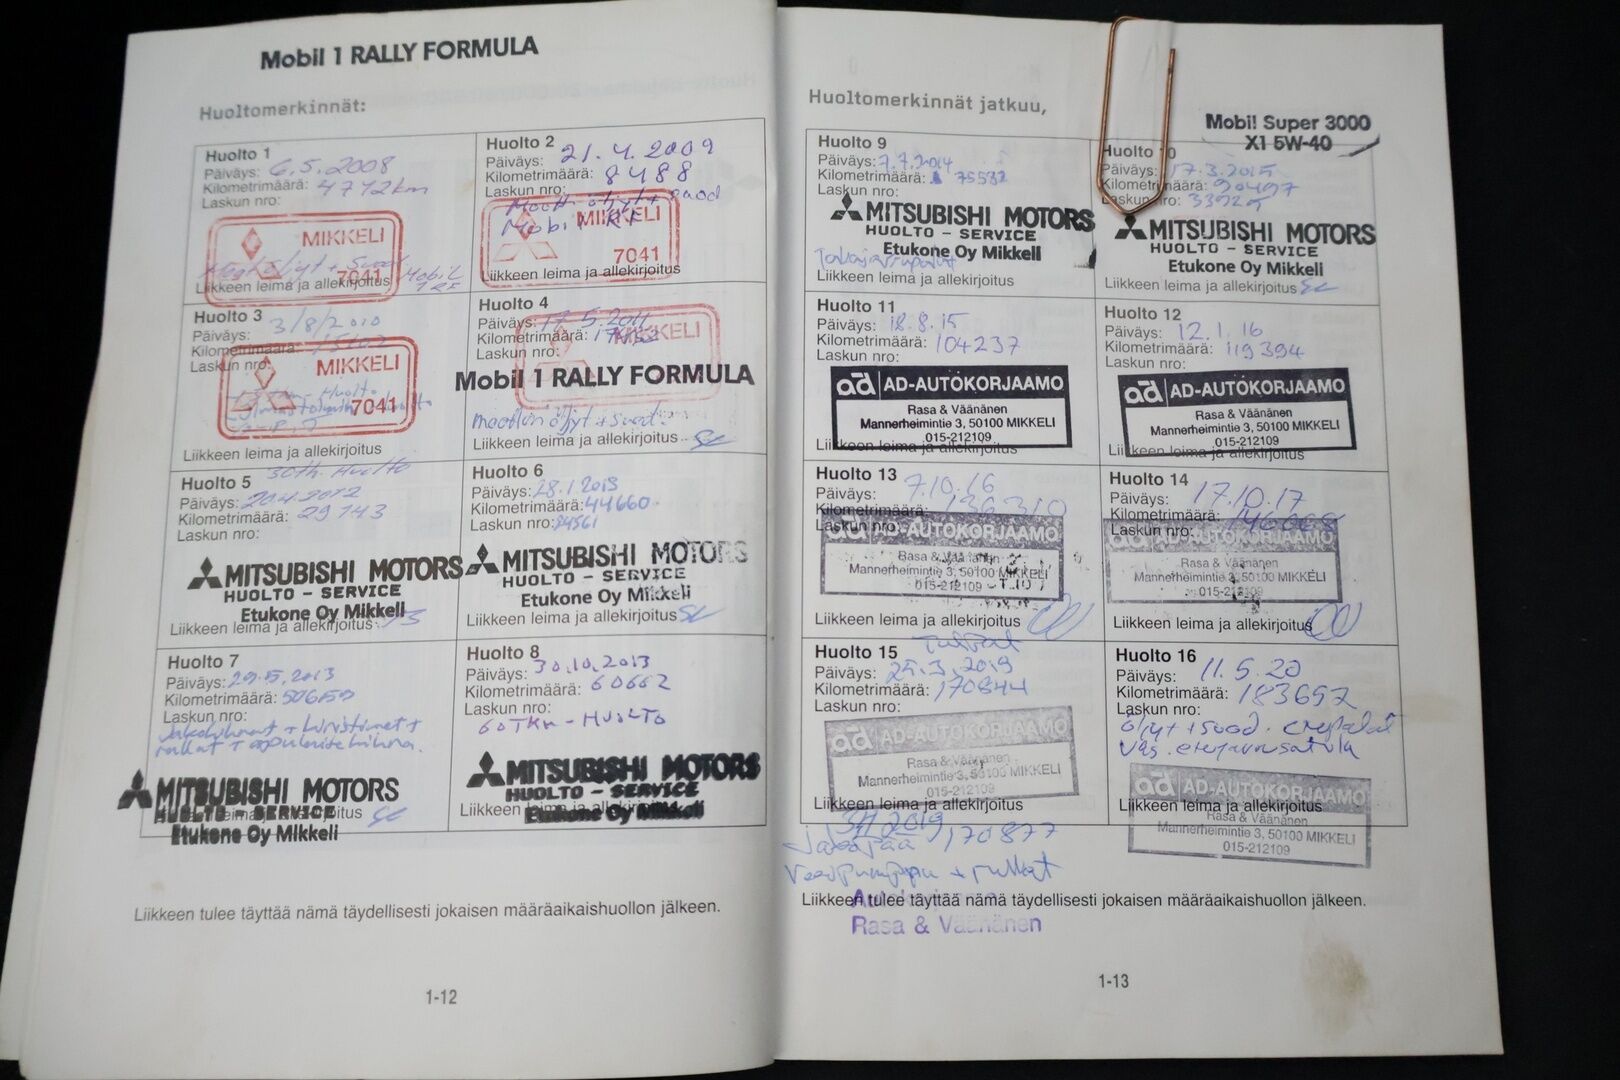 Mobil 1 RALLY FORMULA
Huoltomerkinnät:
Huolto 1
Päiväys: 6.5.2008
Kilometrimäärä: 4712km
Laskun nro:
MIKKELI
7041
Liikkeen leima ja allekirjoitus
Huolto 2
Päiväys: 21.4.2009
Kilometrimäärä: 8488
Laskun nro:
MIKKELI
7041
Liikkeen leima ja allekirjoitus
Huolto 3
Päiväys: 3/8/2010
Kilometrimäärä:
Laskun nro:
MIKKELI
7041
Liikkeen leima ja allekirjoitus
Huolto 4
Päiväys: 17.5.2011
Kilometrimäärä:
Laskun nro:
MIKKELI
Mobil 1 RALLY FORMULA
Moottori öljyt + suod.
Liikkeen leima ja allekirjoitus
30th. Huolto
Huolto 5
Päiväys: 20.4.2012
Kilometrimäärä: 29143
Laskun nro:
MITSUBISHI MOTORS
HUOLTO - SERVICE
Etukone Oy Mikkeli
Liikkeen leima ja allekirjoitus
Huolto 6
Päiväys: 28.1.2013
Kilometrimäärä: 44660
Laskun nro: 84561
MITSUBISHI MOTORS
HUOLTO - SERVICE
Etukone Oy Mikkeli
Liikkeen leima ja allekirjoitus
Huolto 7
Päiväys: 29.5.2013
Kilometrimäärä:
Laskun nro:
Jakohihnat + kiristimet +
rullat + apulaitehihna.
MITSUBISHI MOTORS
HUOLTO - SERVICE
Etukone Oy Mikkeli
Huolto 8
Päiväys: 30.10.2013
Kilometrimäärä: 60662
Laskun nro:
60TKM - HUOLTO
MITSUBISHI MOTORS
HUOLTO - SERVICE
Liikkeen leima ja allekirjoitus
Etukone Oy Mikkeli
Liikkeen tulee täyttää nämä täydellisesti jokaisen määräaikaishuollon jälkeen.
1-12
Huoltomerkinnät jatkuu,
Mobil Super 3000
X1 5W-40
Huolto 9
Päiväys: 7.7.2014
Kilometrimäärä: 75532
Laskun nro:
MITSUBISHI MOTORS
HUOLTO - SERVICE
Etukone Oy Mikkeli
Liikkeen leima ja allekirjoitus
Huolto 10
Päiväys: 17.3.2015
Kilometrimäärä: 90497
Laskun nro:
MITSUBISHI MOTORS
HUOLTO - SERVICE
Etukone Oy Mikkeli
Liikkeen leima ja allekirjoitus
Huolto 11
Päiväys: 18.8.15
Kilometrimäärä: 104237
Laskun nro:
ad AD-AUTOKORJAAMO
Rasa & Väänänen
Mannerheimintie 3, 50100 MIKKELI
015-212109
Liikkeen leima ja allekirjoitus
Huolto 12
Päiväys: 12.1.16
Kilometrimäärä: 119394
Laskun nro:
ad AD-AUTOKORJAAMO
Rasa & Väänänen
Mannerheimintie 3, 50100 MIKKELI
015-212109
Liikkeen leima ja allekirjoitus
Huolto 13
Päiväys: 7.10.16
Kilometrimäärä: 136310
Laskun nro:
ad AD-AUTOKORJAAMO
Rasa & Väänänen
Mannerheimintie 3, 50100 MIKKELI
015-212109
Liikkeen leima ja allekirjoitus
Huolto 14
Päiväys: 17.10.17
Kilometrimäärä:
Laskun nro:
ad AD-AUTOKORJAAMO
Rasa & Väänänen
Mannerheimintie 3, 50100 MIKKELI
015-212109
Liikkeen leima ja allekirjoitus
Huolto 15
Päiväys: 25.3.2019
Kilometrimäärä: 170844
Laskun nro:
ad AD-AUTOKORJAAMO
Rasa & Väänänen
Mannerheimintie 3, 50100 MIKKELI
015-212109
Liikkeen leima ja allekirjoitus
Huolto 16
Päiväys: 11.5.20
Kilometrimäärä: 183697
Laskun nro:
öljyt + suod. etupalat
vas. etujarrusatula
ad AD-AUTOKORJAAMO
Liikkeen leima ja allekirjoitus
Rasa & Väänänen
Mannerheimintie 3, 50100 MIKKELI
015-212109
2019 170877
Jakopää
Vesipumppu + rullat
Liikkeen tulee täyttää nämä täydellisesti jokaisen määräaikaishuollon jälkeen.
Rasa & Väänänen
1-13